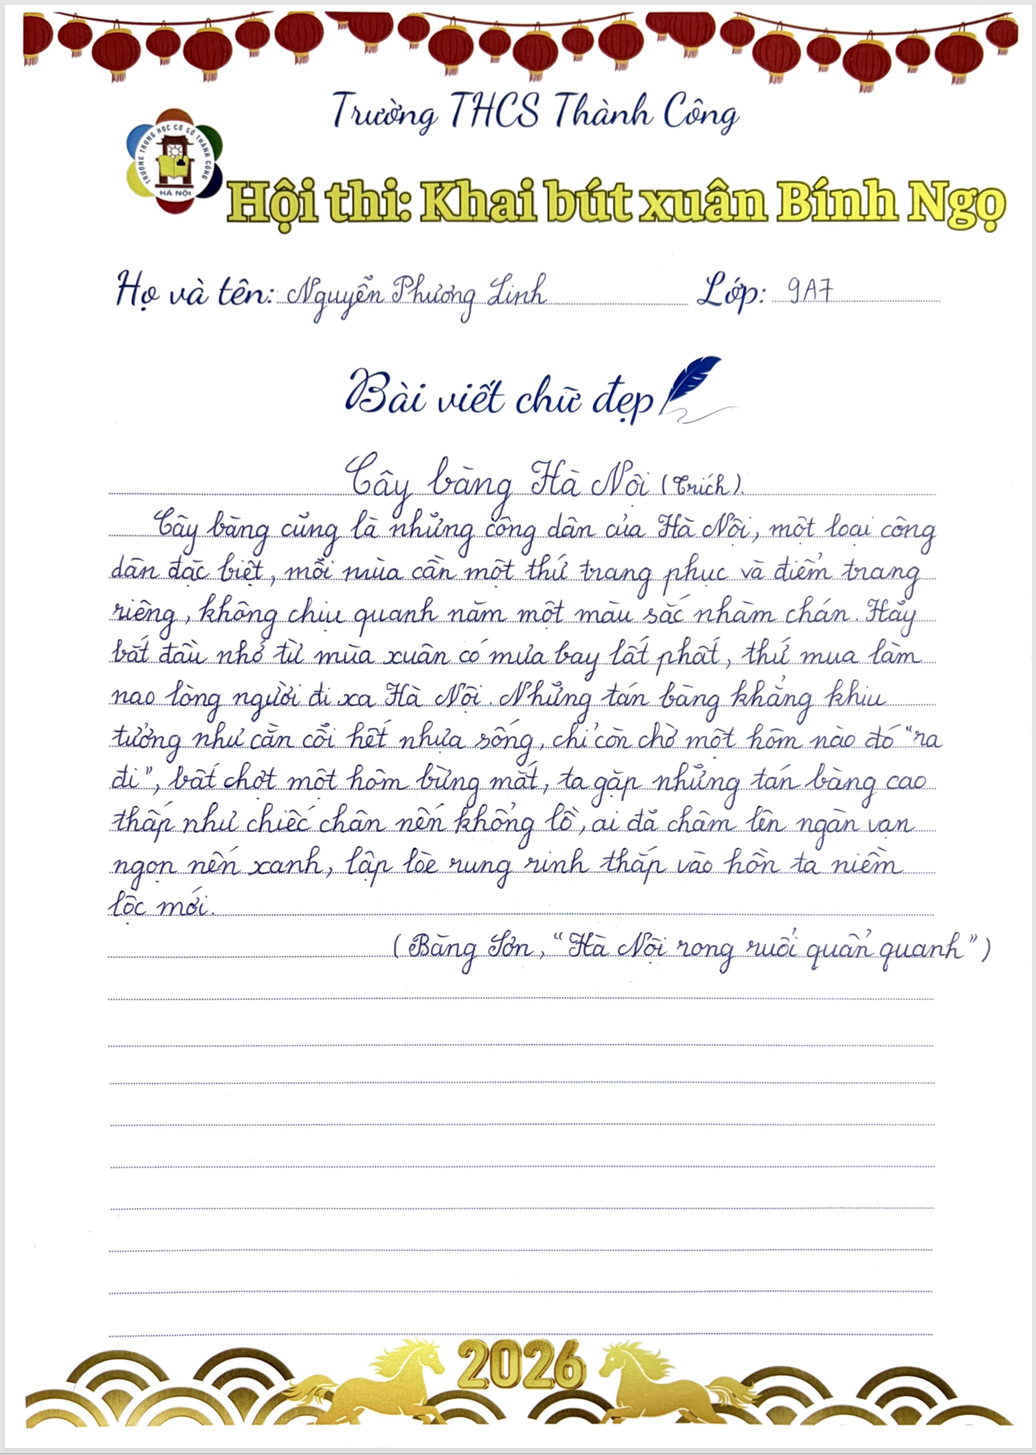 Trường THCS Thành Công
TRƯỜNG TRUNG HỌC CƠ SỞ THÀNH CÔNG
HÀ NỘI
Hội thi: Khai bút xuân Bính Ngọ
Họ và tên: Nguyễn Phương Linh Lớp: 9A7
Bài viết chữ đẹp
Cây bàng Hà Nội (Trích).
Cây bàng cũng là những công dân của Hà Nội, một loại công
dân đặc biệt, mỗi mùa cần một thứ trang phục và điểm trang
riêng, không chịu quanh năm một màu sắc nhàm chán. Hãy
bắt đầu nhớ từ mùa xuân có mưa bay lất phất, thứ mưa làm
nao lòng người đi xa Hà Nội. Những tán bàng khẳng khiu
tưởng như cằn cỗi hết nhựa sống, chỉ còn chờ một hôm nào đó "ra
đi", bất chợt một hôm bừng mắt, ta gặp những tán bàng cao
thấp như chiếc chân nến khổng lồ, ai đã châm lên ngàn vạn
ngọn nến xanh, lập lòe rung rinh thắp vào hồn ta niềm
lộc mới.
(Băng Sơn, "Hà Nội rong ruổi quẩn quanh")
2026